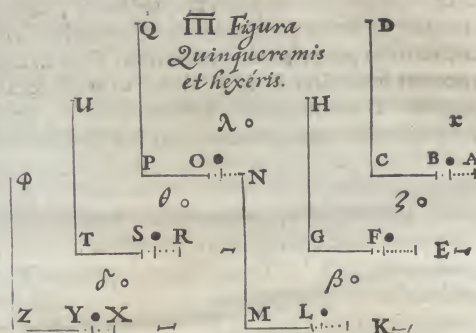 Q III Figura D
Quinqueremis
et hexéris.
U H
λ x
P O N C B A
Φ θ ζ
T S R G F E
δ β
Z Y X M L K